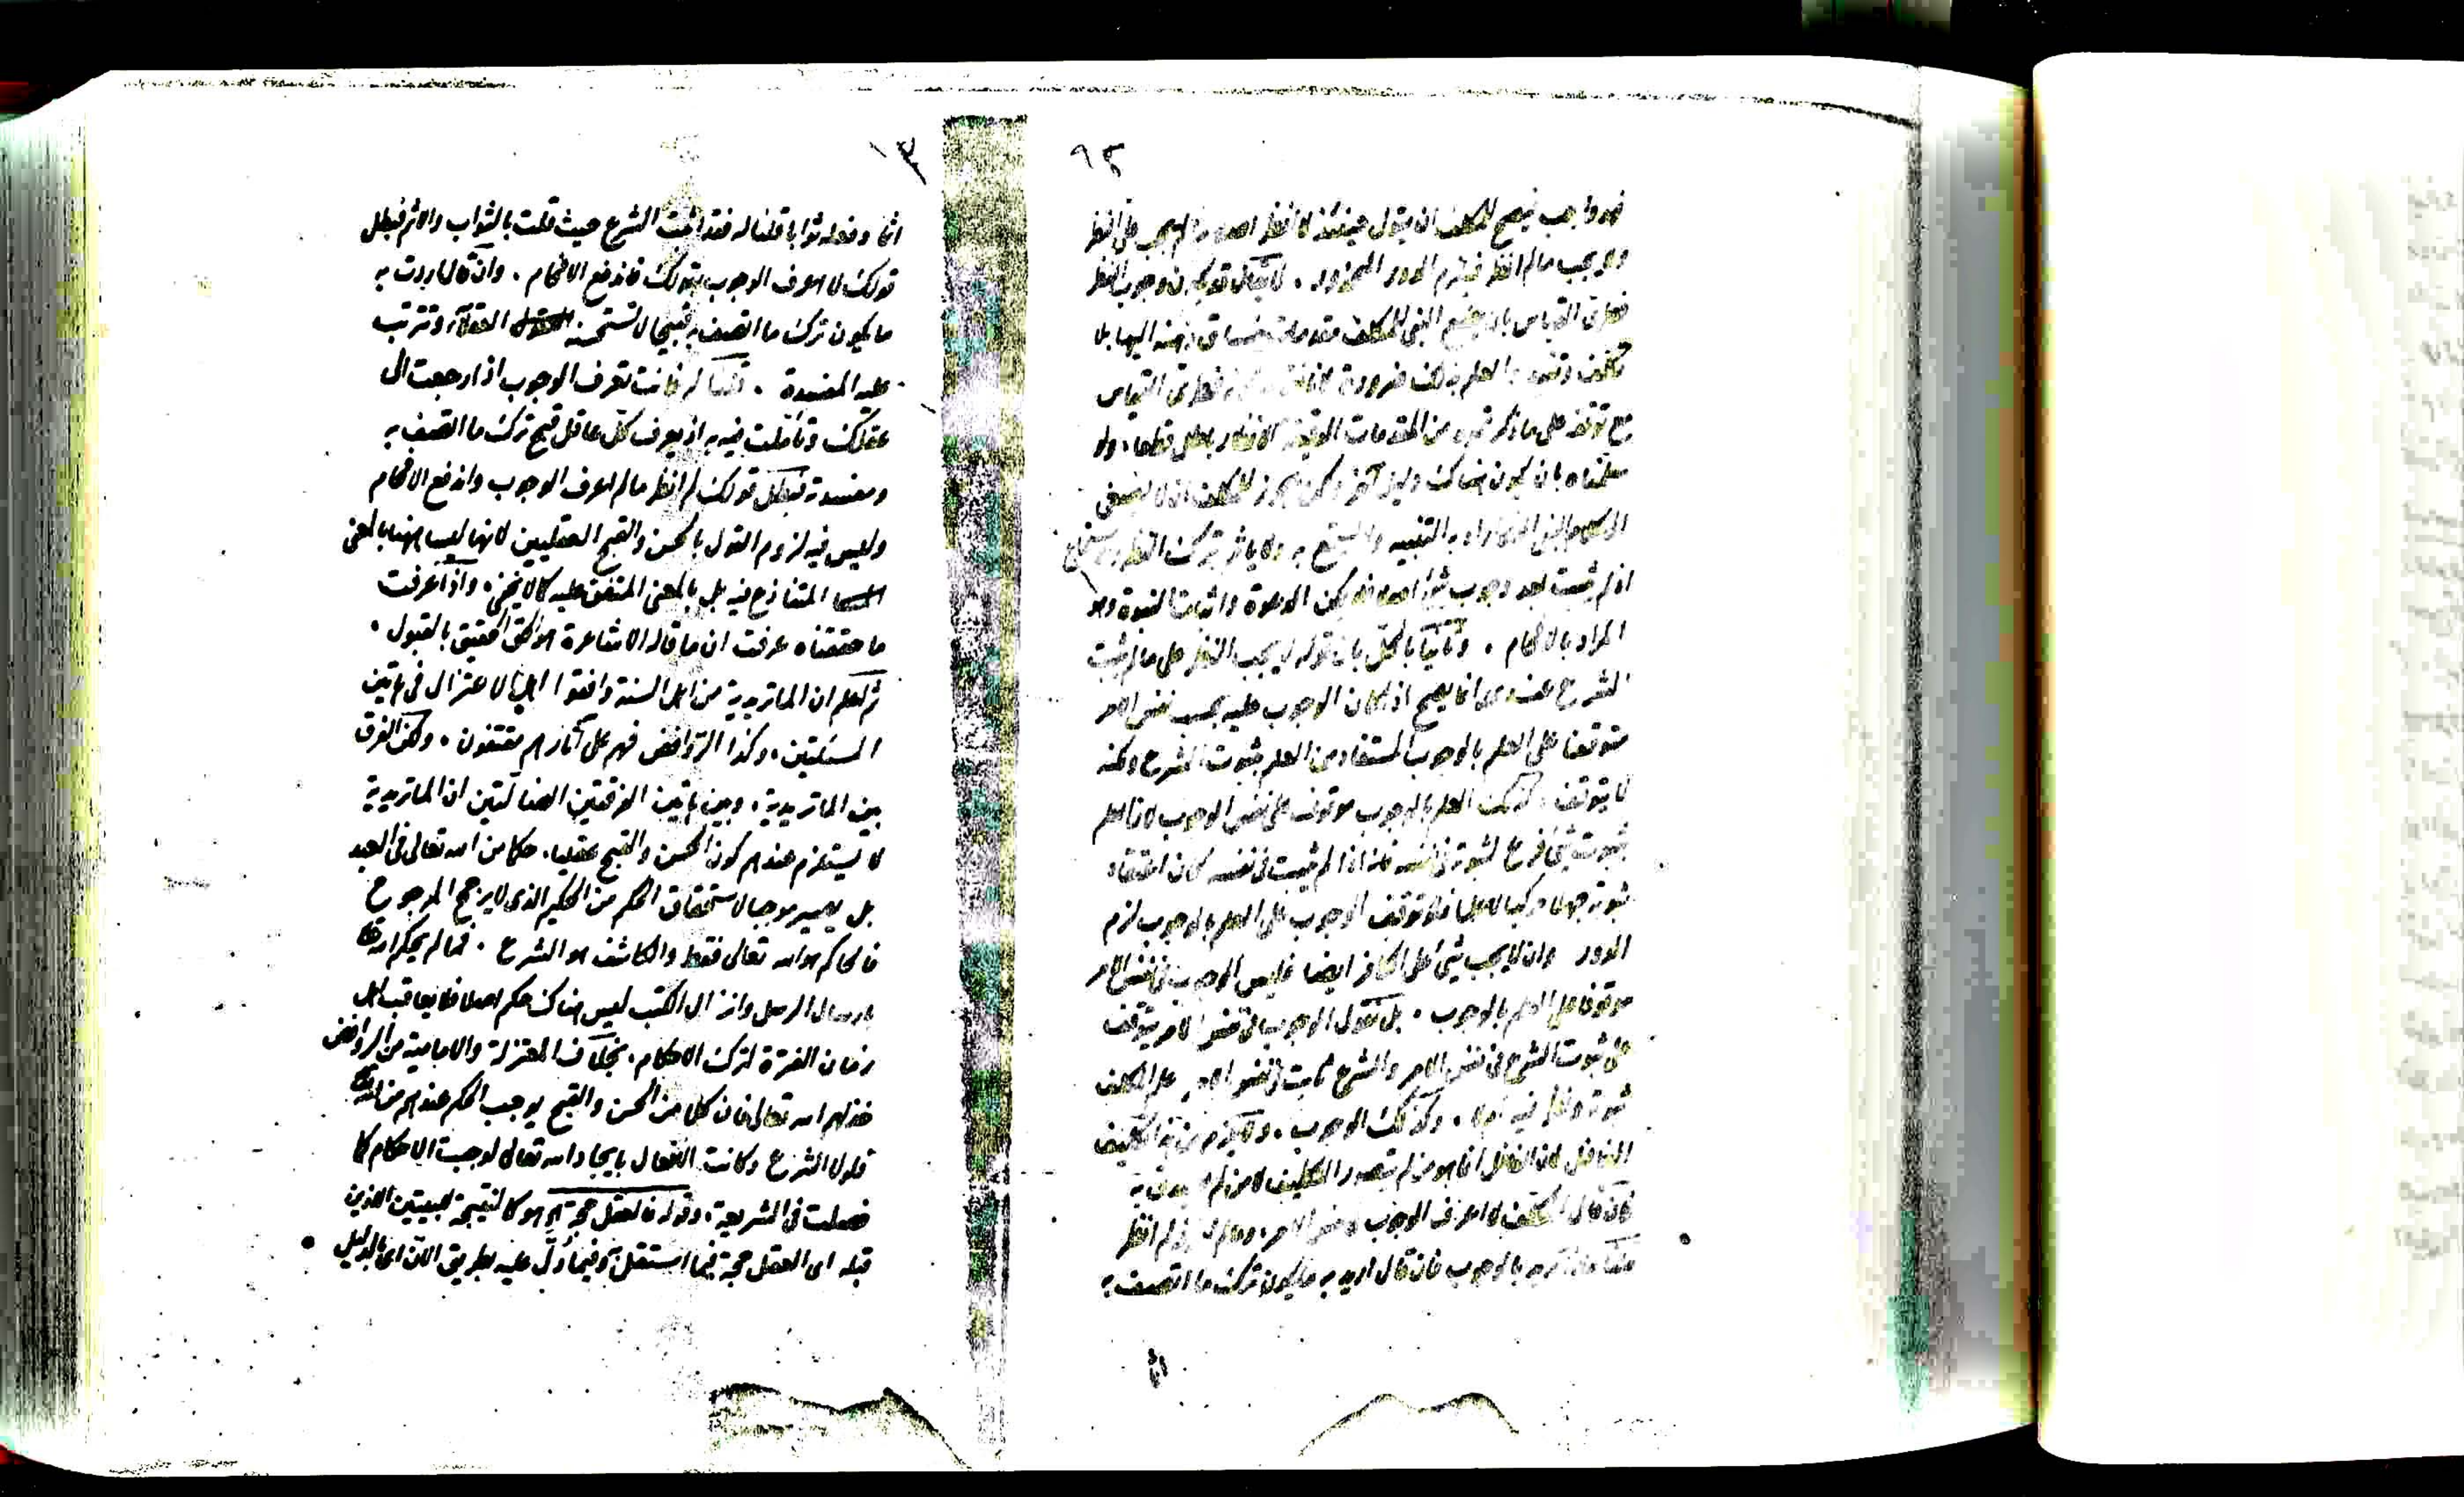 ٩٢
فهو واجب فيصح للمكلف ان يقول حينئذ لا انظر اصلا ما لم يجب على النظر
ولا يجب مالم انظر فيلزم الدور المحذور . لا يقال قد يكون وجوب النظر
فطرى القياس بان يضع النبى للمكلف مقدمات ينساق ذهنه اليها بلا
تكلف وتفيد العلم بذلك ضرورة لانا نقول فطرى القياس
مع توقفه على ما ذكرتموه من المقدمات الدقيقة الانظار باطل قطعا . ولو
سلمناه بان يكون هناك دليل آخر لكن يجوز للمكلف ان لا يصغى
الى كلام النبى الذى اراد به التنبيه ولا يستمع به ولا ياثم بترك النظر والاستماع
اذ لم يثبت بعد وجوب شئ اصلا فلا يمكن الدعوة واثبات النبوة وهو
المراد بالافحام . وثانيا بالحل بان قوله لا يجب النظر على مالم يثبت
الشرع عندى انما يصح اذا كان الوجوب عليه بحسب نفس الامر
متوقفا على العلم بالوجوب المستفاد من العلم بثبوت الشرع ولكنه
لا يتوقف كذلك العلم بالوجوب موقوف على نفس الوجوب لان العلم
بثبوت شئ فرع لثبوته فى نفسه فانه اذا لم يثبت فى نفسه كان اعتقاد
ثبوته جهلا مركبا لا علما فلو توقف الوجوب على العلم بالوجوب لزم
الدور وان لا يجب شئ على الكافر ايضا فليس الوجوب فى نفس الامر
موقوفا على العلم بالوجوب . بل نقول الوجوب فى نفس الامر يتوقف
على ثبوت الشرع فى نفس الامر والشرع ثابت فى نفس الامر علم المكلف
ثبوته ونظر فيه اولا . وكذلك الوجوب . ولا يلزم من هذا تكليف
الغافل لان الغافل انما هو من لم يتصور التكليف لا من لم يصدق به
فان قال المكلف لا اعرف الوجوب فى نفس الامر ومالم اعرف لم انظر
قلنا ماذا تريد بالوجوب فان قال اريد به ما يكون ترك ما اتصف به
اثما
١٣
اثما وفعله ثوابا قلنا له فقد اثبت الشرع حيث قلت بالثواب والاثم فبطل
قولك لا اعرف الوجوب بقولك فاندفع الافحام . وان قال اردت به
ما يكون ترك ما اتصف به قبيحا لا تستحسنه العقلاء وتترتب
عليه المفسدة . قلنا له فانت تعرف الوجوب اذا رجعت الى
عقلك وتاملت فيه به اذ يعرف كل عاقل قبح ترك ما اتصف به
ومفسدته فبطل قولك لم انظر مالم اعرف الوجوب واندفع الافحام
وليس فيه لزوم القول بالحسن والقبح العقليين لانهما ليسا ههنا بالمعنى
المتنازع فيه بل بالمعنى المتفق عليه كما لا يخفى . واذا عرفت
ما حققناه عرفت ان ما قاله الاشاعرة هو الحق الحقيق بالقبول .
ثم اعلم ان الماتريدية من اهل السنة وافقوا اهل الاعتزال فى هاتين
المسئلتين . وكذا الروافض فهم على آثارهم مقتفون . ولكن الفرق
بين الماتريدية . وبين هاتين الفرقتين الضالتين ان الماتريدية
لا يستلزم عندهم كون الحسن والقبح عقليا . حكما من الله تعالى فى العبد
بل يصير موجبا لاستحقاق الحكم من الحكيم الذى لا يرجح المرجوح
فالحاكم هو الله تعالى فقط والكاشف هو الشرع . فما لم يحكم الله تعالى
بارسال الرسل وانزال الكتب ليس هناك حكم اصلا فلا يعاقب اهل
زمان الفترة لترك الاحكام . بخلاف المعتزلة والامامية من الروافض
خذلهم الله تعالى فان كلا من الحسن والقبح يوجب الحكم عندهم من الله تعالى
فلولا الشرع وكانت الافعال بايجاد الله تعالى لوجبت الاحكام كما
فصلت فى الشريعة . وقوله فالعقل حجة آه هو كالنتيجة للبيتين اللذين
قبله اى العقل حجة فيما استقل به وفيما دل عليه بطريق الان اى بالدليل